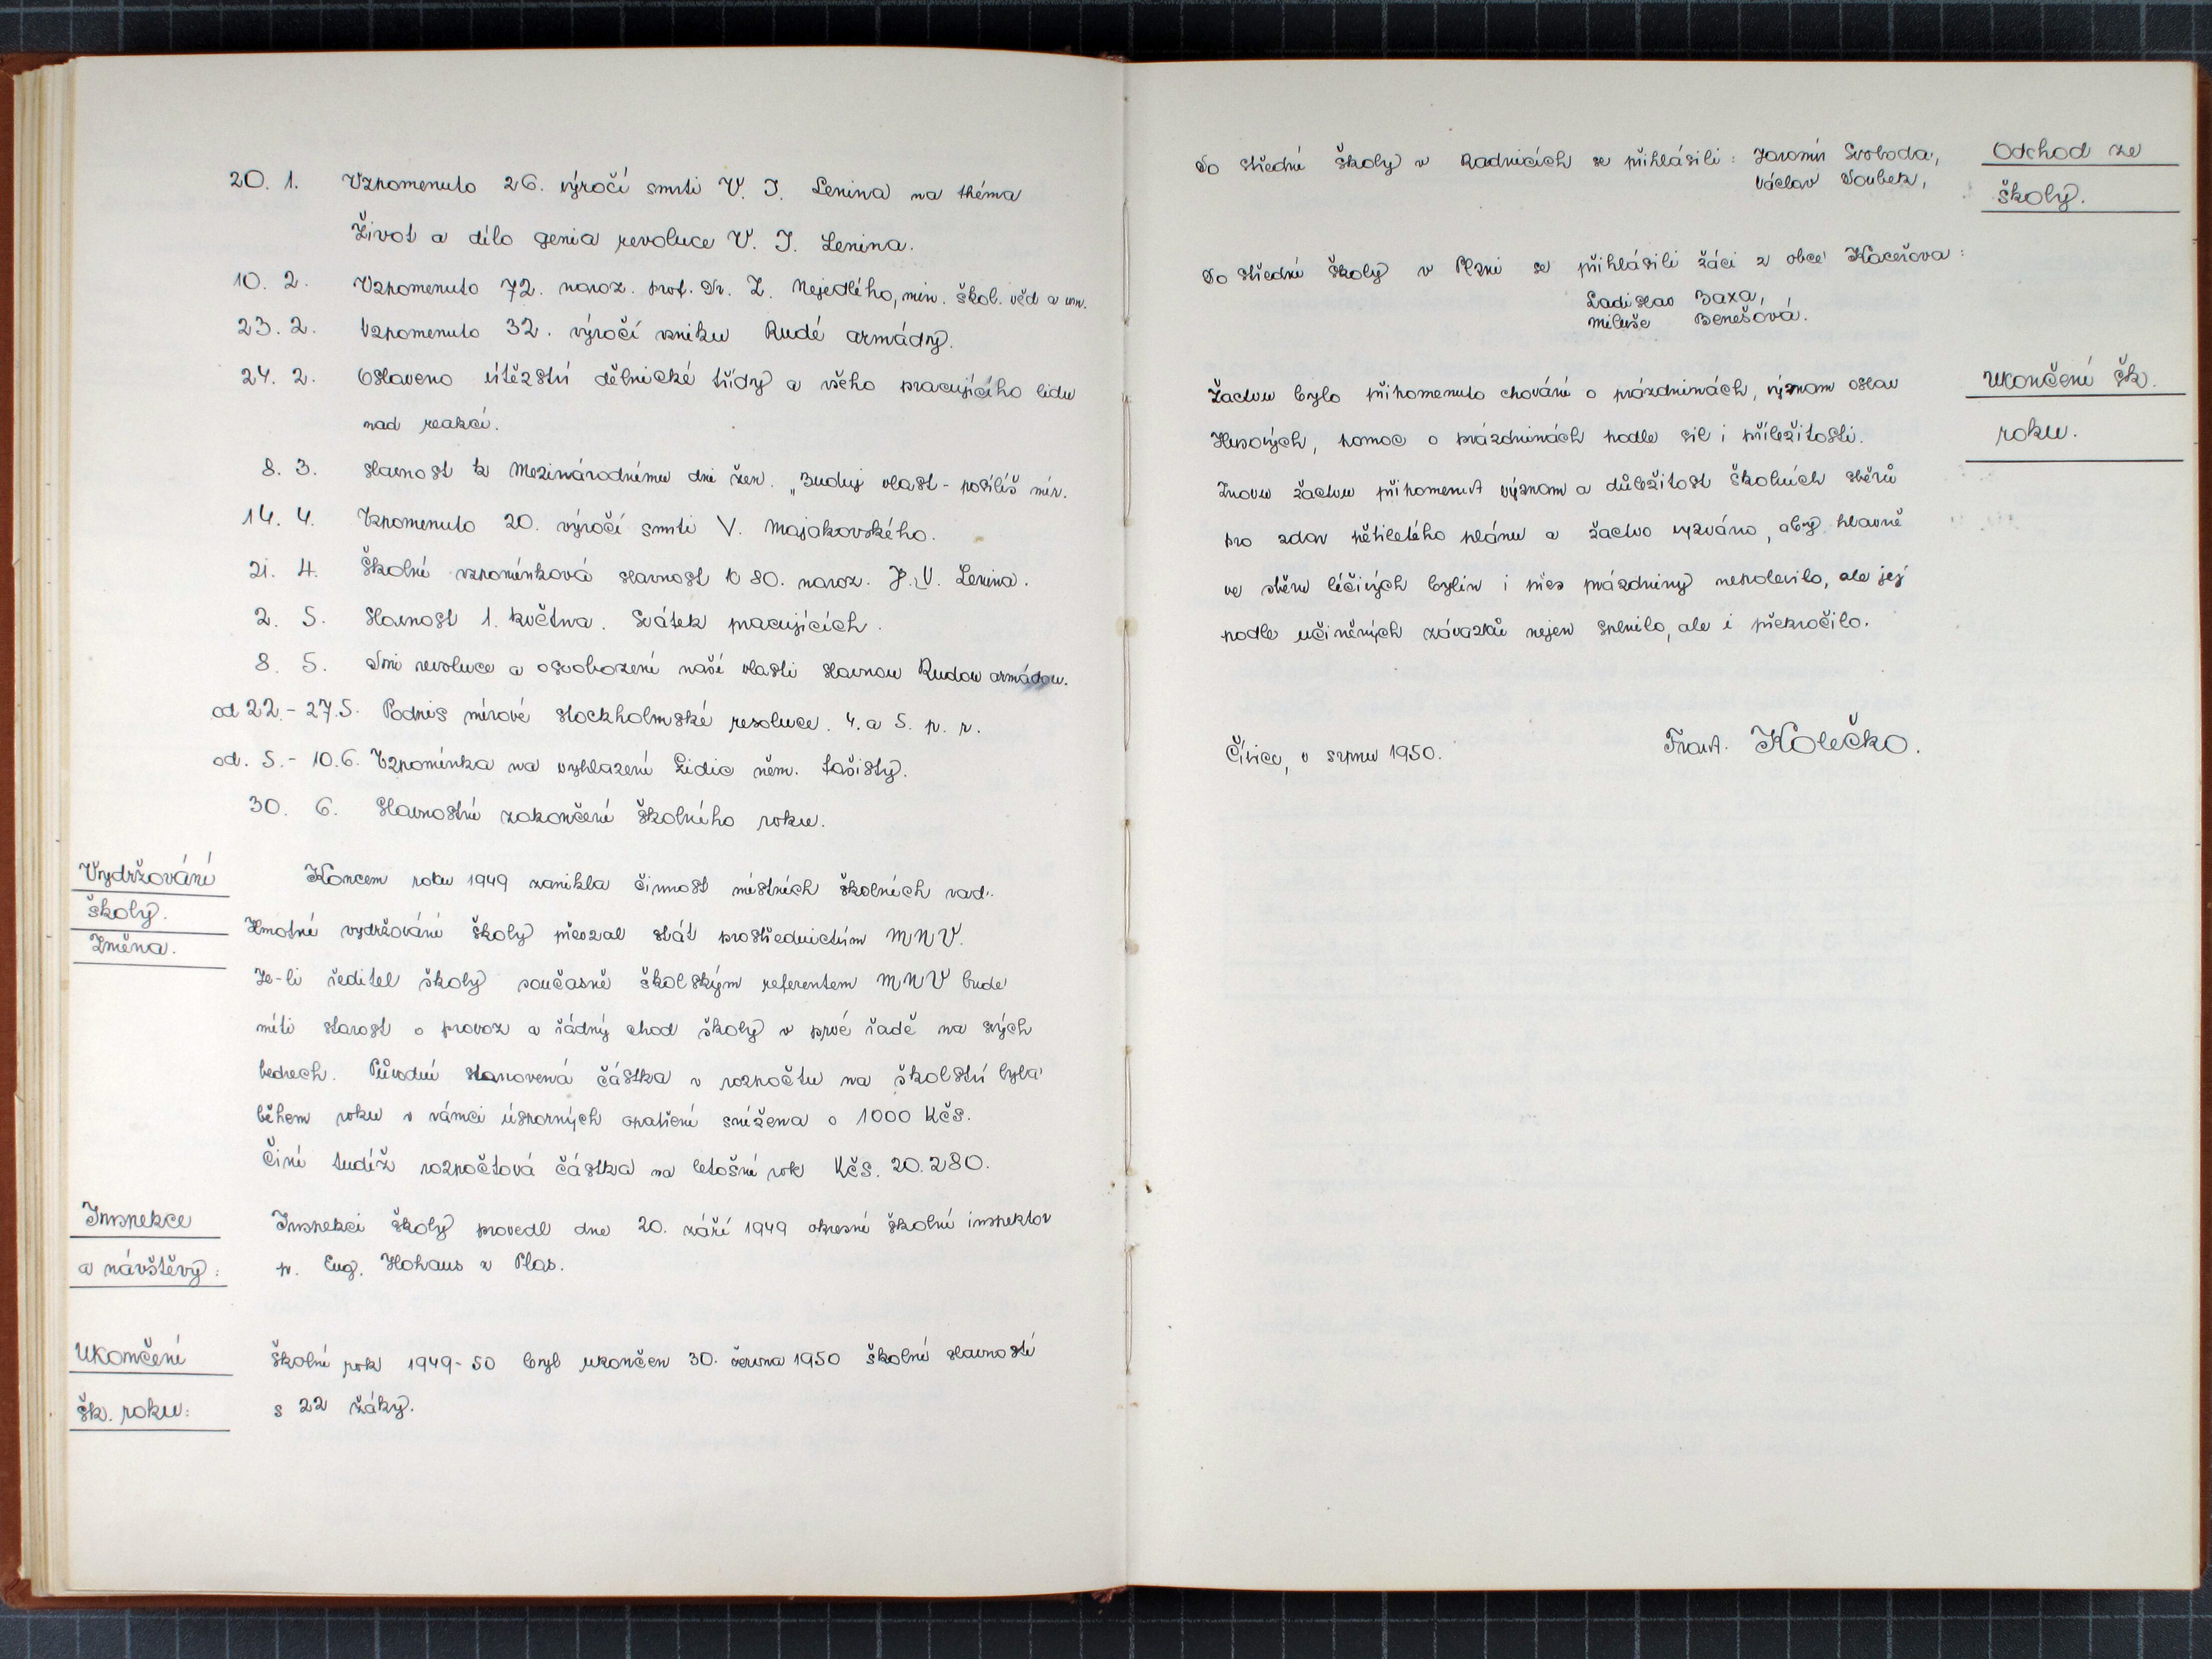 20. 1. Vzpomenuto 26. výročí smrti V. I. Lenina na théma
Život a dílo genia revoluce V. I. Lenina.
10. 2. Vzpomenuto 72. naroz. prof. Dr. Z. Nejedlého, min. škol. věd a um.
23. 2. Vzpomenuto 32. výročí vzniku Rudé armády.
24. 2. Oslaveno vítězství dělnické třídy a všeho pracujícího lidu
nad reakcí.
8. 3. Slavnost k Mezinárodnímu dni žen. „Buduj vlast - posílíš mír.
14. 4. Vzpomenuto 20. výročí smrti V. Majakovského.
21. 4. Školní vzpomínková slavnost k 80. naroz. J. V. Lenina.
2. 5. Slavnost 1. května. Svátek pracujících.
8. 5. Dni revoluce a osvobození naší vlasti slavnou Rudou armádou.
od 22. - 27. 5. Podpis mírové stockholmské resoluce. 4. a 5. p. r.
od. 5. - 10. 6. Vzpomínka na vyhlazení Lidic něm. fašisty.
30. 6. Slavnostní zakončení školního roku.
Vydržování
školy.
Změna.
Koncem roku 1949 zanikla činnost místních školních rad.
Hmotné vydržování školy převzal stát prostřednictvím MNV.
Je-li ředitel školy současně školským referentem MNV bude
míti starost o provoz a řádný chod školy v prvé řadě na svých
bedrech. Původní stanovená částka v rozpočtu na školství byla
během roku v rámci úsporných opatření snížena o 1000 Kčs.
Činí tudíž rozpočtová částka na letošní rok Kčs. 20.280.
Inspekce
a návštěvy:
Inspekci školy provedl dne 20. září 1949 okresní školní inspektor
p. Eug. Hohaus z Plas.
Ukončení
šk. roku:
Školní rok 1949-50 byl ukončen 30. června 1950 školní slavností
s 22 žáky.
Odchod ze
školy.
Do střední školy v Radnicích se přihlásili: Jaromír Svoboda,
Václav Soubek,
Do střední školy v Plzni se přihlásili žáci z obce Kaceřova:
Ladislav Baxa,
Miluše Benešová.
Ukončení šk.
roku.
Žactvu bylo připomenuto chování o prázdninách, význam oslav
Husových, pomoc o prázdninách podle sil i příležitosti.
Znovu žactvu připomenut význam a důležitost školních sběrů
pro zdar pětiletého plánu a žactvo vyzváno, aby hlavně
ve sběru léčivých bylin i přes prázdniny nepolevilo, ale jej
podle učiněných závazků nejen splnilo, ale i překročilo.
Čívice, v srpnu 1950. Frant. Kolečko.